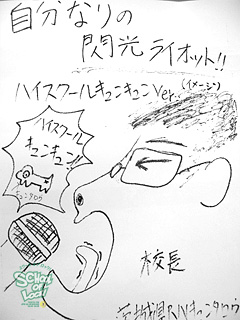 自分なりの
閃光ライオット!!
ハイスクールキュンキュンver.(イメージ)
ハイスクール
キュンキュン!!
キュンタロウ
校長
茨城県RNキュンタロウ
SCHOOL
OF LOCK!